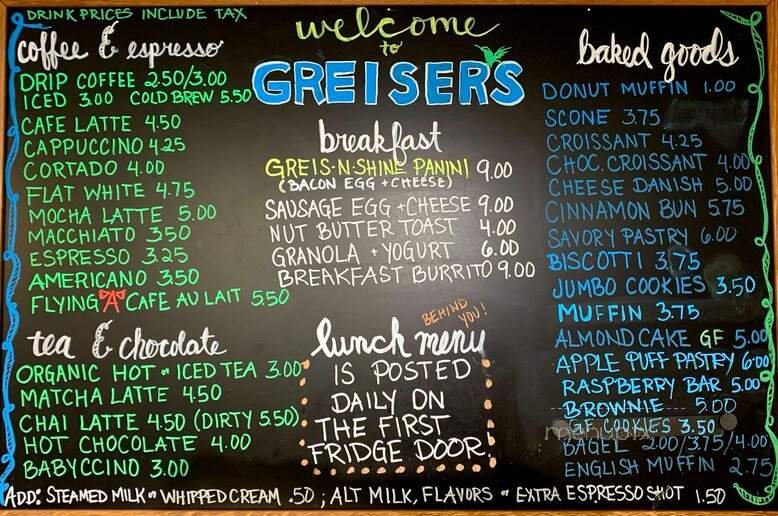 DRINK PRICES INCLUDE TAX
coffee & espresso
DRIP COFFEE 2.50/3.00
ICED 3.00 COLD BREW 5.50
CAFE LATTE 4.50
CAPPUCCINO 4.25
CORTADO 4.00
FLAT WHITE 4.75
MOCHA LATTE 5.00
MACCHIATO 3.50
ESPRESSO 3.25
AMERICANO 3.50
FLYING "A" CAFE AU LAIT 5.50
tea & chocolate
ORGANIC HOT or ICED TEA 3.00
MATCHA LATTE 4.50
CHAI LATTE 4.50 (DIRTY 5.50)
HOT CHOCOLATE 4.00
BABYCCINO 3.00
welcome
to
GREISER'S
breakfast
GREIS-N-SHINE PANINI 9.00
(BACON EGG + CHEESE)
SAUSAGE EGG + CHEESE 9.00
NUT BUTTER TOAST 4.00
GRANOLA + YOGURT 6.00
BREAKFAST BURRITO 9.00
lunch menu
BEHIND YOU!
IS POSTED
DAILY ON
THE FIRST
FRIDGE DOOR.
baked goods
DONUT MUFFIN 1.00
SCONE 3.75
CROISSANT 4.25
CHOC. CROISSANT 4.00
CHEESE DANISH 5.00
CINNAMON BUN 5.75
SAVORY PASTRY 6.00
BISCOTTI 3.75
JUMBO COOKIES 3.50
MUFFIN 3.75
ALMOND CAKE GF 5.00
APPLE PUFF PASTRY 6.00
RASPBERRY BAR 5.00
BROWNIE 5.00
GF COOKIES 3.50
BAGEL 2.00/3.75/4.00
ENGLISH MUFFIN 2.75
menupix
ADD: STEAMED MILK or WHIPPED CREAM .50 ; ALT MILK, FLAVORS or EXTRA ESPRESSO SHOT 1.50